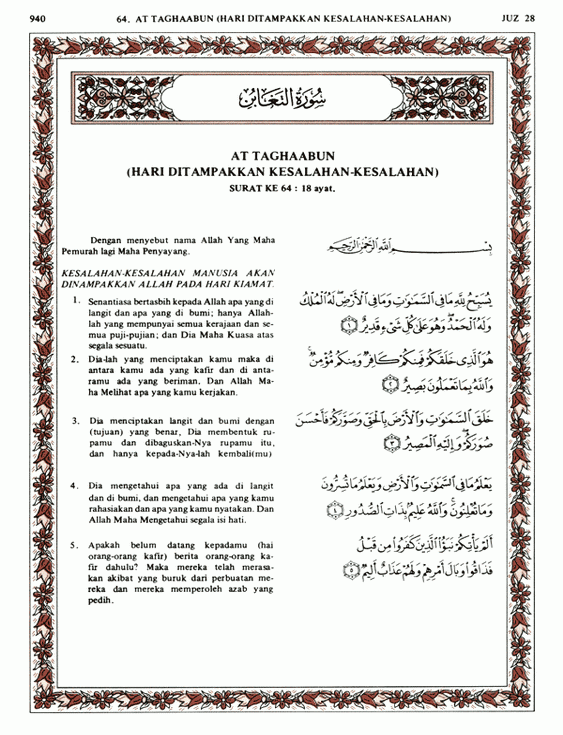 940 64. AT TAGHAABUN (HARI DITAMPAKKAN KESALAHAN-KESALAHAN) JUZ 28
سُورَةُ التَّغَابُنِ
AT TAGHAABUN
(HARI DITAMPAKKAN KESALAHAN-KESALAHAN)
SURAT KE 64 : 18 ayat.
Dengan menyebut nama Allah Yang Maha
Pemurah lagi Maha Penyayang.
بِسْمِ اللَّهِ الرَّحْمَنِ الرَّحِيمِ
KESALAHAN-KESALAHAN MANUSIA AKAN
DINAMPAKKAN ALLAH PADA HARI KIAMAT.
1. Senantiasa bertasbih kepada Allah apa yang di
langit dan apa yang di bumi; hanya Allah-
lah yang mempunyai semua kerajaan dan se-
mua puji-pujian; dan Dia Maha Kuasa atas
segala sesuatu.
يُسَبِّحُ لِلَّهِ مَا فِي السَّمَٰوَٰتِ وَمَا فِي الْأَرْضِ ۖ لَهُ الْمُلْكُ
وَلَهُ الْحَمْدُ ۖ وَهُوَ عَلَىٰ كُلِّ شَيْءٍ قَدِيرٌ ﴿١﴾
2. Dia-lah yang menciptakan kamu maka di
antara kamu ada yang kafir dan di anta-
ramu ada yang beriman. Dan Allah Ma-
ha Melihat apa yang kamu kerjakan.
هُوَ الَّذِي خَلَقَكُمْ فَمِنكُمْ كَافِرٌ وَمِنكُم مُّؤْمِنٌ ۚ
وَاللَّهُ بِمَا تَعْمَلُونَ بَصِيرٌ ﴿٢﴾
3. Dia menciptakan langit dan bumi dengan
(tujuan) yang benar, Dia membentuk ru-
pamu dan dibaguskan-Nya rupamu itu,
dan hanya kepada-Nya-lah kembali(mu)
خَلَقَ السَّمَٰوَٰتِ وَالْأَرْضَ بِالْحَقِّ وَصَوَّرَكُمْ فَأَحْسَنَ
صُوَرَكُمْ ۖ وَإِلَيْهِ الْمَصِيرُ ﴿٣﴾
4. Dia mengetahui apa yang ada di langit
dan di bumi, dan mengetahui apa yang kamu
rahasiakan dan apa yang kamu nyatakan. Dan
Allah Maha Mengetahui segala isi hati.
يَعْلَمُ مَا فِي السَّمَٰوَٰتِ وَالْأَرْضِ وَيَعْلَمُ مَا تُسِرُّونَ
وَمَا تُعْلِنُونَ ۚ وَاللَّهُ عَلِيمٌ بِذَاتِ الصُّدُورِ ﴿٤﴾
5. Apakah belum datang kepadamu (hai
orang-orang kafir) berita orang-orang ka-
fir dahulu? Maka mereka telah merasa-
kan akibat yang buruk dari perbuatan me-
reka dan mereka memperoleh azab yang
pedih.
أَلَمْ يَأْتِكُمْ نَبَؤُا الَّذِينَ كَفَرُوا مِن قَبْلُ
فَذَاقُوا وَبَالَ أَمْرِهِمْ وَلَهُمْ عَذَابٌ أَلِيمٌ ﴿٥﴾